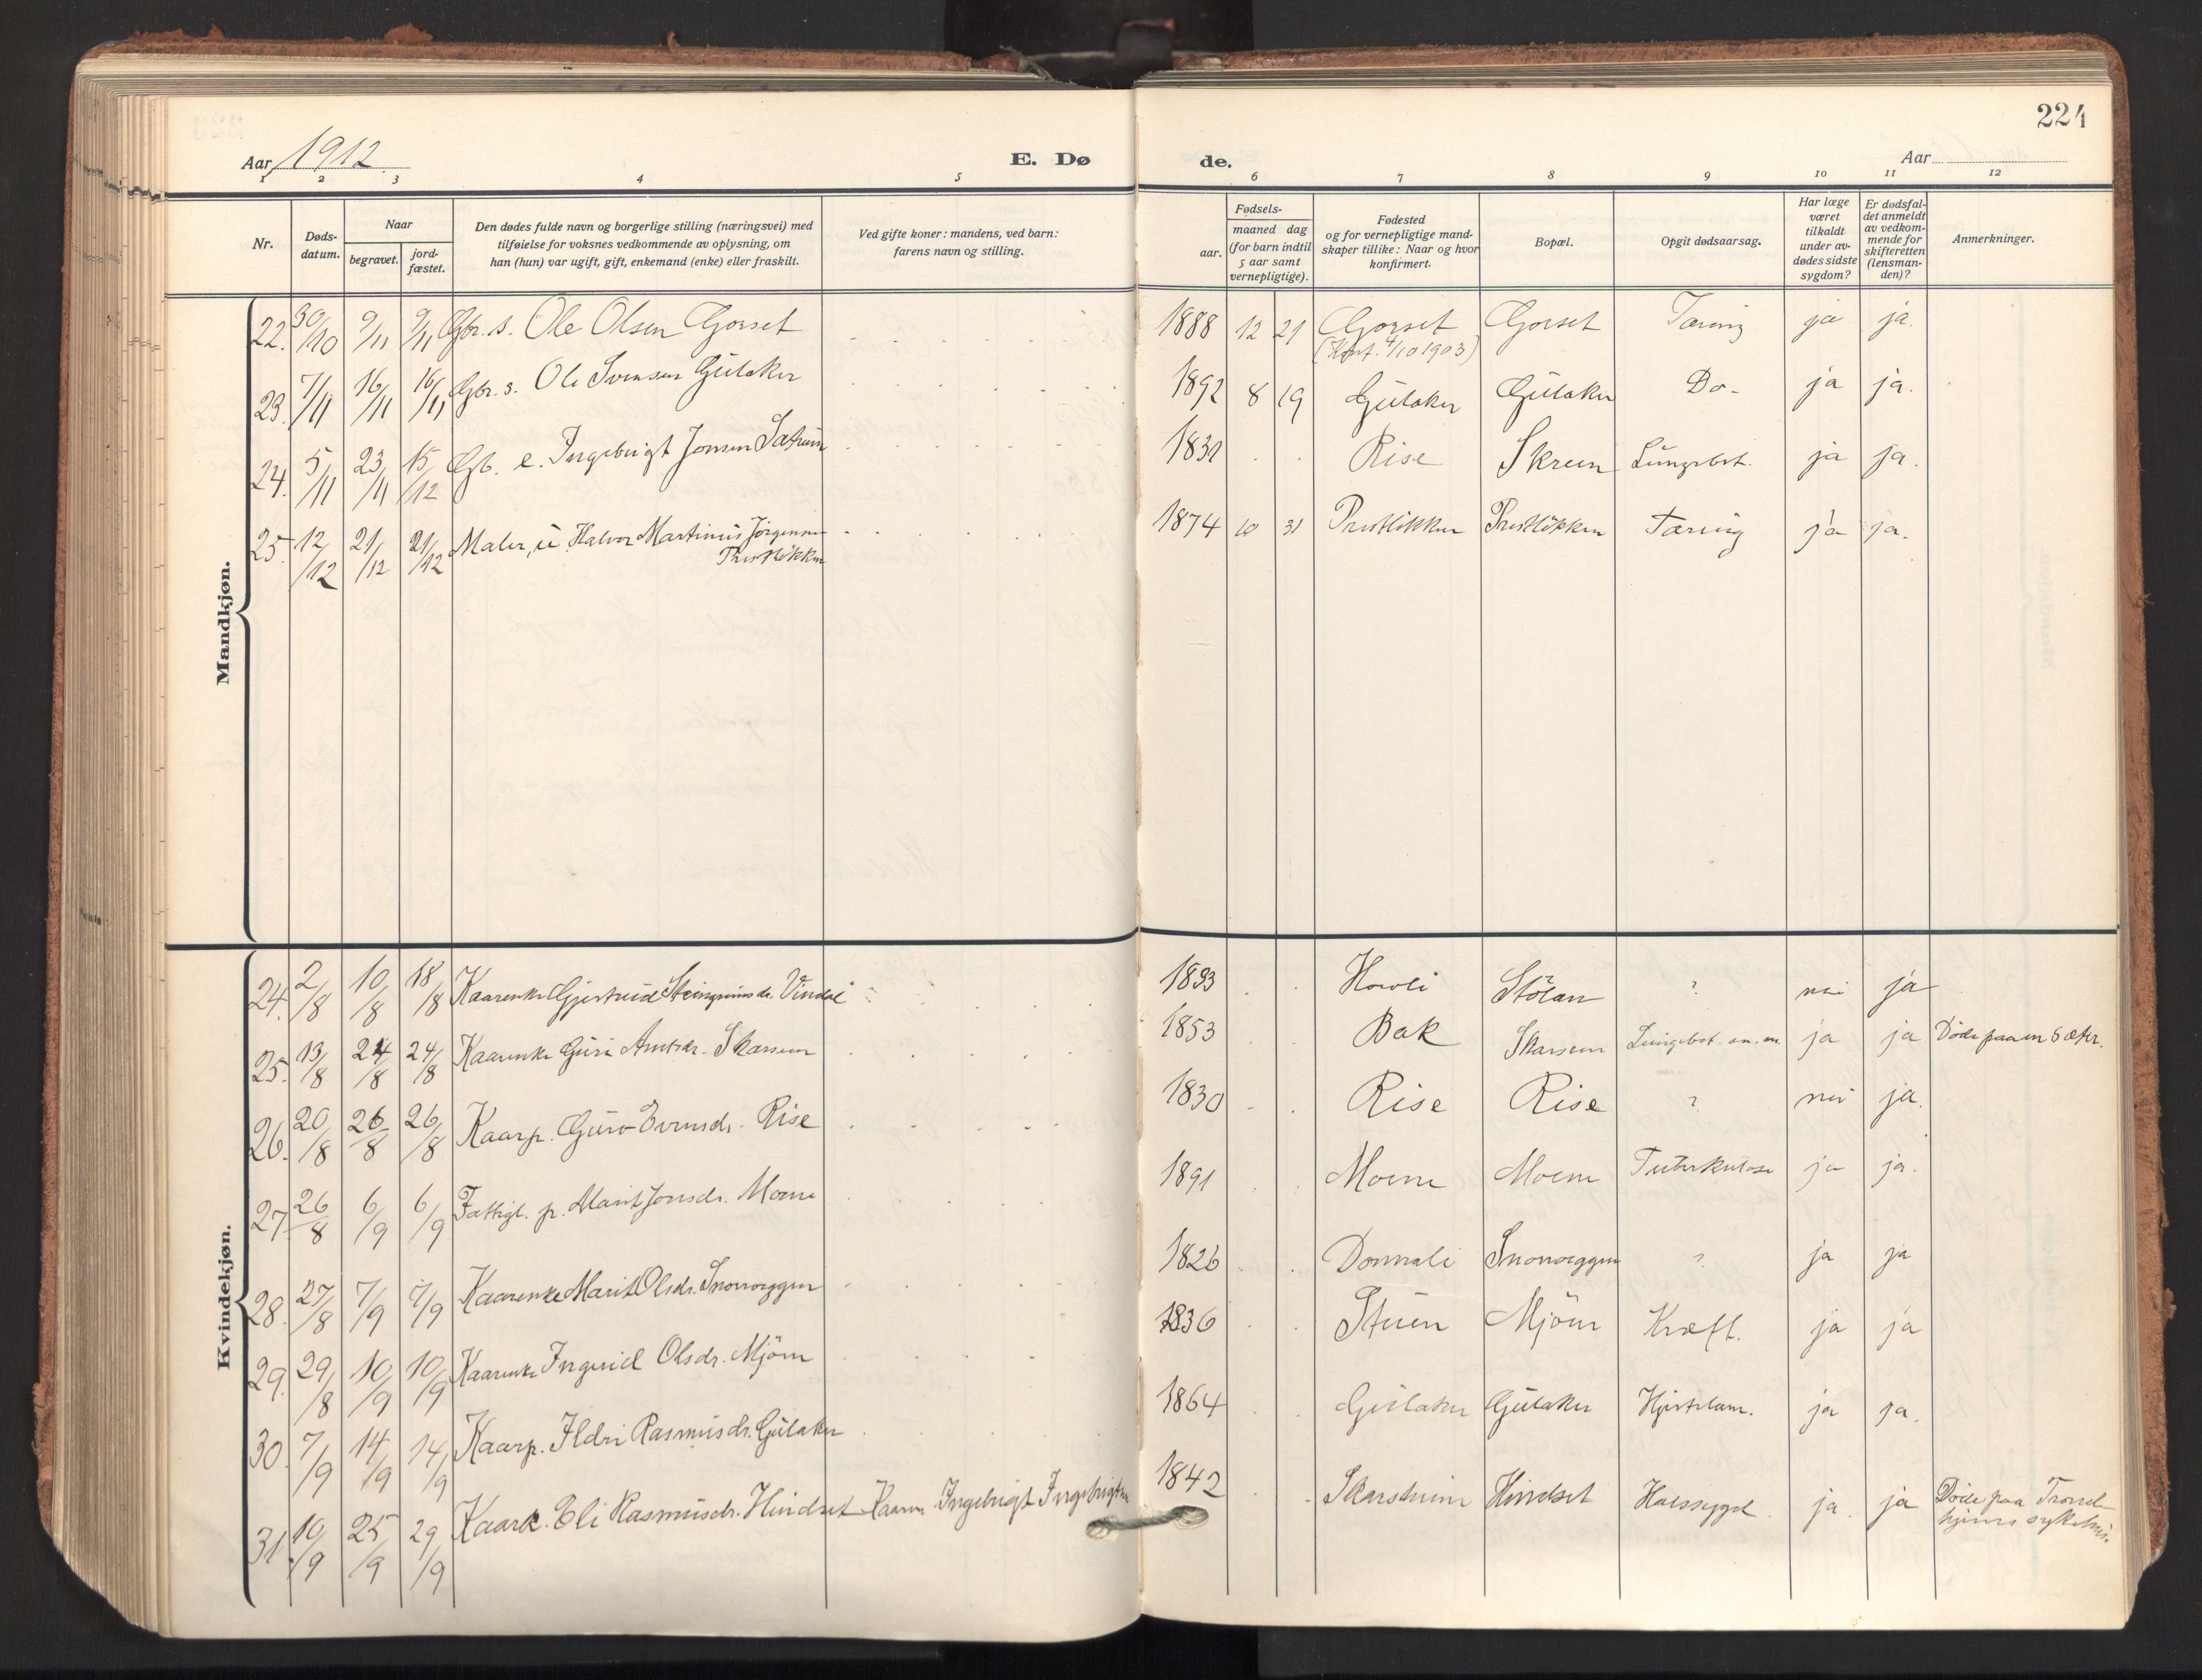 224
Aar 1912
E. Dø
de.
Aar
1 2 3 4 5 6 7 8 9 10 11 12
Nr.
Døds-
datum.
Naar
begravet.
jord-
fæstet.
Den dødes fulde navn og borgerlige stilling (næringsvei) med
tilføielse for voksnes vedkommende av oplysning, om
han (hun) var ugift, gift, enkemand (enke) eller fraskilt.
Ved gifte koner: mandens, ved barn:
farens navn og stilling.
Fødsels-
aar.
maaned dag
(for barn indtil
5 aar samt
vernepligtige).
Fødested
og for vernepligtige mand-
skaper tillike: Naar og hvor
konfirmert.
Bopæl.
Opgit dødsaarsag.
Har læge
været
tilkaldt
under av-
dødes sidste
sygdom?
Er dødsfal-
det anmeldt
av vedkom-
mende for
skifteretten
(lensman-
den)?
Anmerkninger.
Mandkjøn.
22. 30/10 9/11 9/11 Gbr. s. Ole Olsen Gorset 1888 12 21 Gorset Gorset Tæring ja ja.
(Konf. 4/10 1903)
23. 7/11 16/11 16/11 Gbr. s. Ole Svensen Gulaker 1892 8 19 Gulaker Gulaker Do- ja ja.
24. 5/11 23/11 15/12 Gb. e. Ingebrigt Jonsen Satrum 1831 Rise Skreen Lungebet. ja ja.
25. 12/12 21/12 21/12 Maler, u. Halvor Martinus Jörgensen 1874 10 31 Prestlökken Prestlökken Tæring ja ja.
Prestlökken
Kvindekjøn.
24. 2/8 10/8 18/8 Kaarenke Gjertrud Steingrimsdr. Vindal 1833 Hovoli Stölan ? nei ja
25. 13/8 24/8 24/8 Kaarenke Guri Arntsdr. Skarsem 1853 Bak Skarsem Lungebet. ja ja Döde paa en sæter.
26. 20/8 26/8 26/8 Kaarp. Guro Evensdr. Rise 1830 Rise Rise ? nei ja.
27. 26/8 6/9 6/9 Fattigl. p. Marit Jonsdr. Moene 1891 Moene Moene Tuberkulose ja ja.
28. 27/8 7/9 7/9 Kaarenke Marit Olsdr. Snoveggen 1826 Donnali Snoveggen ? ja ja
29. 29/8 10/9 10/9 Kaarenke Ingerid Olsdr. Mjöen 1836 Stuen Mjöen Kræft. ja ja
30. 7/9 14/9 14/9 Kaarp. Ildri Rasmusdr. Gulaker 1864 Gulaker Gulaker Hjertelam. ja ja.
31. 10/9 25/9 29/9 Kaark. Eli Rasmusdr. Hindset Kaarm. Ingebrigt Ingebrigtsen 1842 Skarsheim Hindset Halssygd. ja. ja Döde paa Trond-
hjems sykehus.